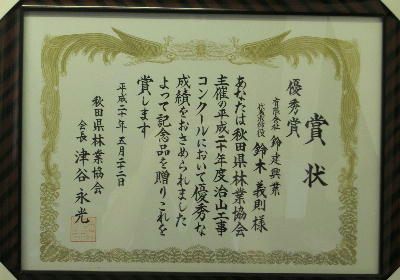 賞状
優秀賞
有限会社 鈴建興業
代表取締役 鈴木義則様
あなたは秋田県林業協会
主催の平成二十年度治山工事
コンクールにおいて優秀な
成績をおさめられました
よって記念品を贈りこれを
賞します
平成二十年五月二十二日
秋田県林業協会
会長 津谷永光